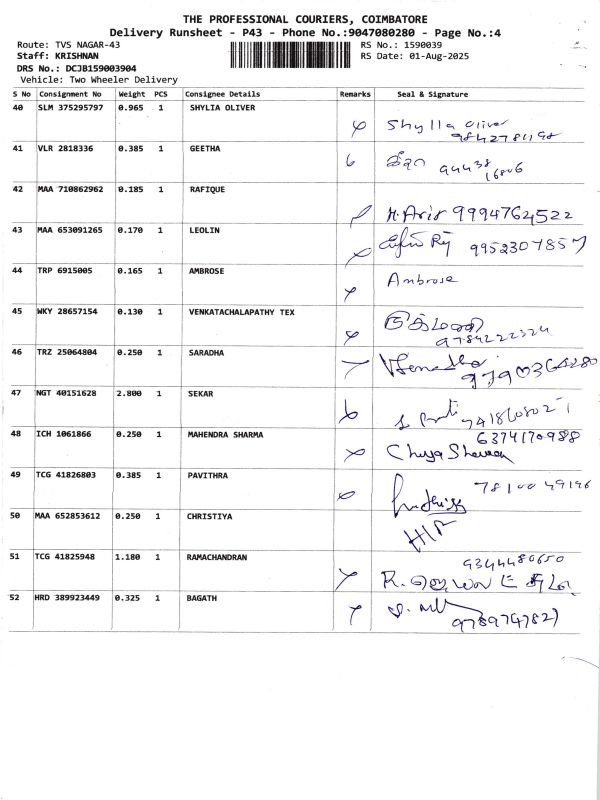 THE PROFESSIONAL COURIERS, COIMBATORE
Delivery Runsheet - P43 - Phone No.:9047080280 - Page No.:4
Route: TVS NAGAR-43 RS No.: 1590039
Staff: KRISHNAN RS Date: 01-Aug-2025
DRS No.: DCJB159003904
Vehicle: Two Wheeler Delivery
S No Consignment No Weight PCS Consignee Details Remarks Seal & Signature
40 SLM 375295797 0.965 1 SHYLIA OLIVER
Shylla Oliver
9842781198
41 VLR 2818336 0.385 1 GEETHA
கீதா 94438
16806
42 MAA 710862962 0.185 1 RAFIQUE
M.Aris 9994764522
43 MAA 653091265 0.170 1 LEOLIN
9952307857
44 TRP 6915005 0.165 1 AMBROSE
Ambrose
45 WKY 28657154 0.130 1 VENKATACHALAPATHY TEX
9784222324
46 TRZ 25064804 0.250 1 SARADHA
9790364280
47 NGT 40151628 2.800 1 SEKAR
48 ICH 1061866 0.250 1 MAHENDRA SHARMA
6374170988
49 TCG 41826803 0.385 1 PAVITHRA
7810049196
50 MAA 652853612 0.250 1 CHRISTIYA
51 TCG 41825948 1.180 1 RAMACHANDRAN
9344480650
52 HRD 389923449 0.325 1 BAGATH